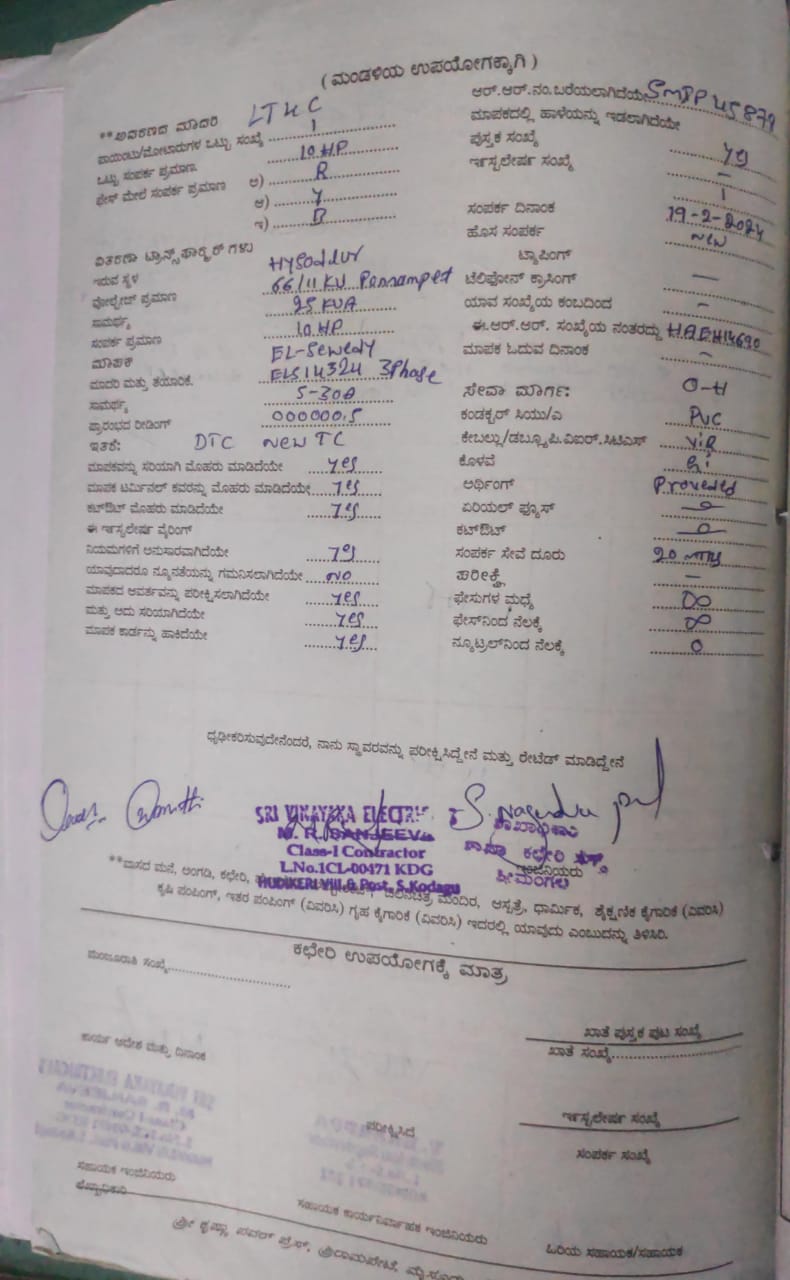 ( ಮಂಡಳಿಯ ಉಪಯೋಗಕ್ಕಾಗಿ )
ಮಾದರಿ LT4C
ಪಾಯಿಂಟು/ಮೋಟಾರುಗಳ ಒಟ್ಟು ಸಂಖ್ಯೆ 1
ಒಟ್ಟು ಸಂಪರ್ಕ ಪ್ರಮಾಣ 10 HP
ಫೇಸ್ ಮೇಲೆ ಸಂಪರ್ಕ ಪ್ರಮಾಣ ಅ) R
ಆ) Y
ಇ) B
ವಿತರಣಾ ಟ್ರಾನ್ಸ್‌ಫಾರ್ಮರ್ ಗಳು
ಇರುವ ಸ್ಥಳ Hysoddur
ವೋಲ್ಟೇಜ್ ಪ್ರಮಾಣ 66/11 KV Ponnampet
ಸಾಮರ್ಥ್ಯ 25 KVA
ಸಂಪರ್ಕ ಪ್ರಮಾಣ 10 HP
ಮಾಪಕ EL-Sewedy
ಮಾದರಿ ಮತ್ತು ತಯಾರಿಕೆ. ELS14324 3Phase
ಸಾಮರ್ಥ್ಯ 5-30A
ಪ್ರಾರಂಭದ ರೀಡಿಂಗ್ 000000.5
ಇತರೆ: DTC New TC
ಮಾಪಕವನ್ನು ಸರಿಯಾಗಿ ಮೊಹರು ಮಾಡಿದೆಯೇ yes
ಮಾಪಕ ಟರ್ಮಿನಲ್ ಕವರನ್ನು ಮೊಹರು ಮಾಡಿದೆಯೇ yes
ಕಟ್‌ಔಟ್ ಮೊಹರು ಮಾಡಿದೆಯೇ yes
ಈ ಇನ್ಸ್ಟಲೇಷನ್ ವೈರಿಂಗ್
ನಿಯಮಗಳಿಗೆ ಅನುಸಾರವಾಗಿದೆಯೇ yes
ಯಾವುದಾದರೂ ನ್ಯೂನತೆಯನ್ನು ಗಮನಿಸಲಾಗಿದೆಯೇ NO
ಮಾಪಕದ ಆವರ್ತವನ್ನು ಪರೀಕ್ಷಿಸಲಾಗಿದೆಯೇ yes
ಮತ್ತು ಅದು ಸರಿಯಾಗಿದೆಯೇ yes
ಮಾಪಕ ಕಾರ್ಡನ್ನು ಹಾಕಿದೆಯೇ yes
ಆರ್.ಆರ್.ನಂ.ಬರೆಯಲಾಗಿದೆಯೇ SMIP45879
ಮಾಪಕದಲ್ಲಿ ಹಾಳೆಯನ್ನು ಇಡಲಾಗಿದೆಯೇ
ಪುಸ್ತಕ ಸಂಖ್ಯೆ yes
ಇನ್ಸ್ಟಲೇಷನ್ ಸಂಖ್ಯೆ –
1
ಸಂಪರ್ಕ ದಿನಾಂಕ 19-2-2024
ಹೊಸ ಸಂಪರ್ಕ New
ಟ್ಯಾಪಿಂಗ್
ಟೆಲಿಫೋನ್ ಕ್ರಾಸಿಂಗ್ —
ಯಾವ ಸಂಖ್ಯೆಯ ಕಂಬದಿಂದ –
ಈ.ಆರ್.ಆರ್. ಸಂಖ್ಯೆಯ ನಂತರದ್ದು HAEH14690
ಮಾಪಕ ಓದುವ ದಿನಾಂಕ –
ಸೇವಾ ಮಾರ್ಗ: O-H
ಕಂಡಕ್ಟರ್ ಸಿಯು/ಎ PVC
ಕೇಬಲ್ಲು/ಡಬ್ಲ್ಯೂಪಿ.ವಿಐಆರ್.ಸಿಟಿಎಸ್ VIR
ಕೊಳವೆ Gi
ಅರ್ಥಿಂಗ್ Proveded
ಏರಿಯಲ್ ಫ್ಯೂಸ್
ಕಟ್‌ಔಟ್
ಸಂಪರ್ಕ ಸೇವೆ ದೂರು 20 mtrs
ಪರೀಕ್ಷೆ —
ಫೇಸುಗಳ ಮಧ್ಯೆ ∞
ಫೇಸ್‌ನಿಂದ ನೆಲಕ್ಕೆ ∞
ನ್ಯೂಟ್ರಲ್‌ನಿಂದ ನೆಲಕ್ಕೆ 0
ಧೃಢೀಕರಿಸುವುದೇನೆಂದರೆ, ನಾನು ಸ್ಥಾವರವನ್ನು ಪರೀಕ್ಷಿಸಿದ್ದೇನೆ ಮತ್ತು ರೇಟೆಡ್ ಮಾಡಿದ್ದೇನೆ
SRI VINAYAKA ELECTRIC
M. R. SANJEEVA
Class-I Contractor
L.No.1CL-00471 KDG
HUDIKERI Vill & Post, S.Kodagu
ಶಾಖಾಧಿಕಾರಿ
ಶಾಖಾ ಕಛೇರಿ
ಇಂಜಿನಿಯರು
ಶ್ರೀಮಂಗಲ
**ವಾಸದ ಮನೆ, ಅಂಗಡಿ, ಕಛೇರಿ, ಚಲನಚಿತ್ರ ಮಂದಿರ, ಆಸ್ಪತ್ರೆ, ಧಾರ್ಮಿಕ, ಶೈಕ್ಷಣಿಕ ಕೈಗಾರಿಕೆ (ವಿವರಿಸಿ)
ಕೃಷಿ ಪಂಪಿಂಗ್, ಇತರ ಪಂಪಿಂಗ್ (ವಿವರಿಸಿ) ಗೃಹ ಕೈಗಾರಿಕೆ (ವಿವರಿಸಿ) ಇದರಲ್ಲಿ ಯಾವುದು ಎಂಬುದನ್ನು ತಿಳಿಸಿರಿ.
ಕಛೇರಿ ಉಪಯೋಗಕ್ಕೆ ಮಾತ್ರ
ಮಂಜೂರಾತಿ ಸಂಖ್ಯೆ
ಖಾತೆ ಪುಸ್ತಕ ಪುಟ ಸಂಖ್ಯೆ
ಕಾರ್ಯ ಆದೇಶ ಮತ್ತು ದಿನಾಂಕ
ಖಾತೆ ಸಂಖ್ಯೆ
ಪರೀಕ್ಷಿಸಿದೆ
ಇನ್ಸ್ಟಲೇಷನ್ ಸಂಖ್ಯೆ
ಸಂಪರ್ಕ ಸಂಖ್ಯೆ
ಸಹಾಯಕ ಇಂಜಿನಿಯರು
ಸಹಾಯಕ ಕಾರ್ಯನಿರ್ವಾಹಕ ಇಂಜಿನಿಯರು
ಹಿರಿಯ ಸಹಾಯಕ/ಸಹಾಯಕ
ಶ್ರೀ ಕೃಷ್ಣಾ ಪವರ್ ಪ್ರೆಸ್, ಶ್ರೀರಾಮಪೇಟೆ, ಮೈಸೂರು